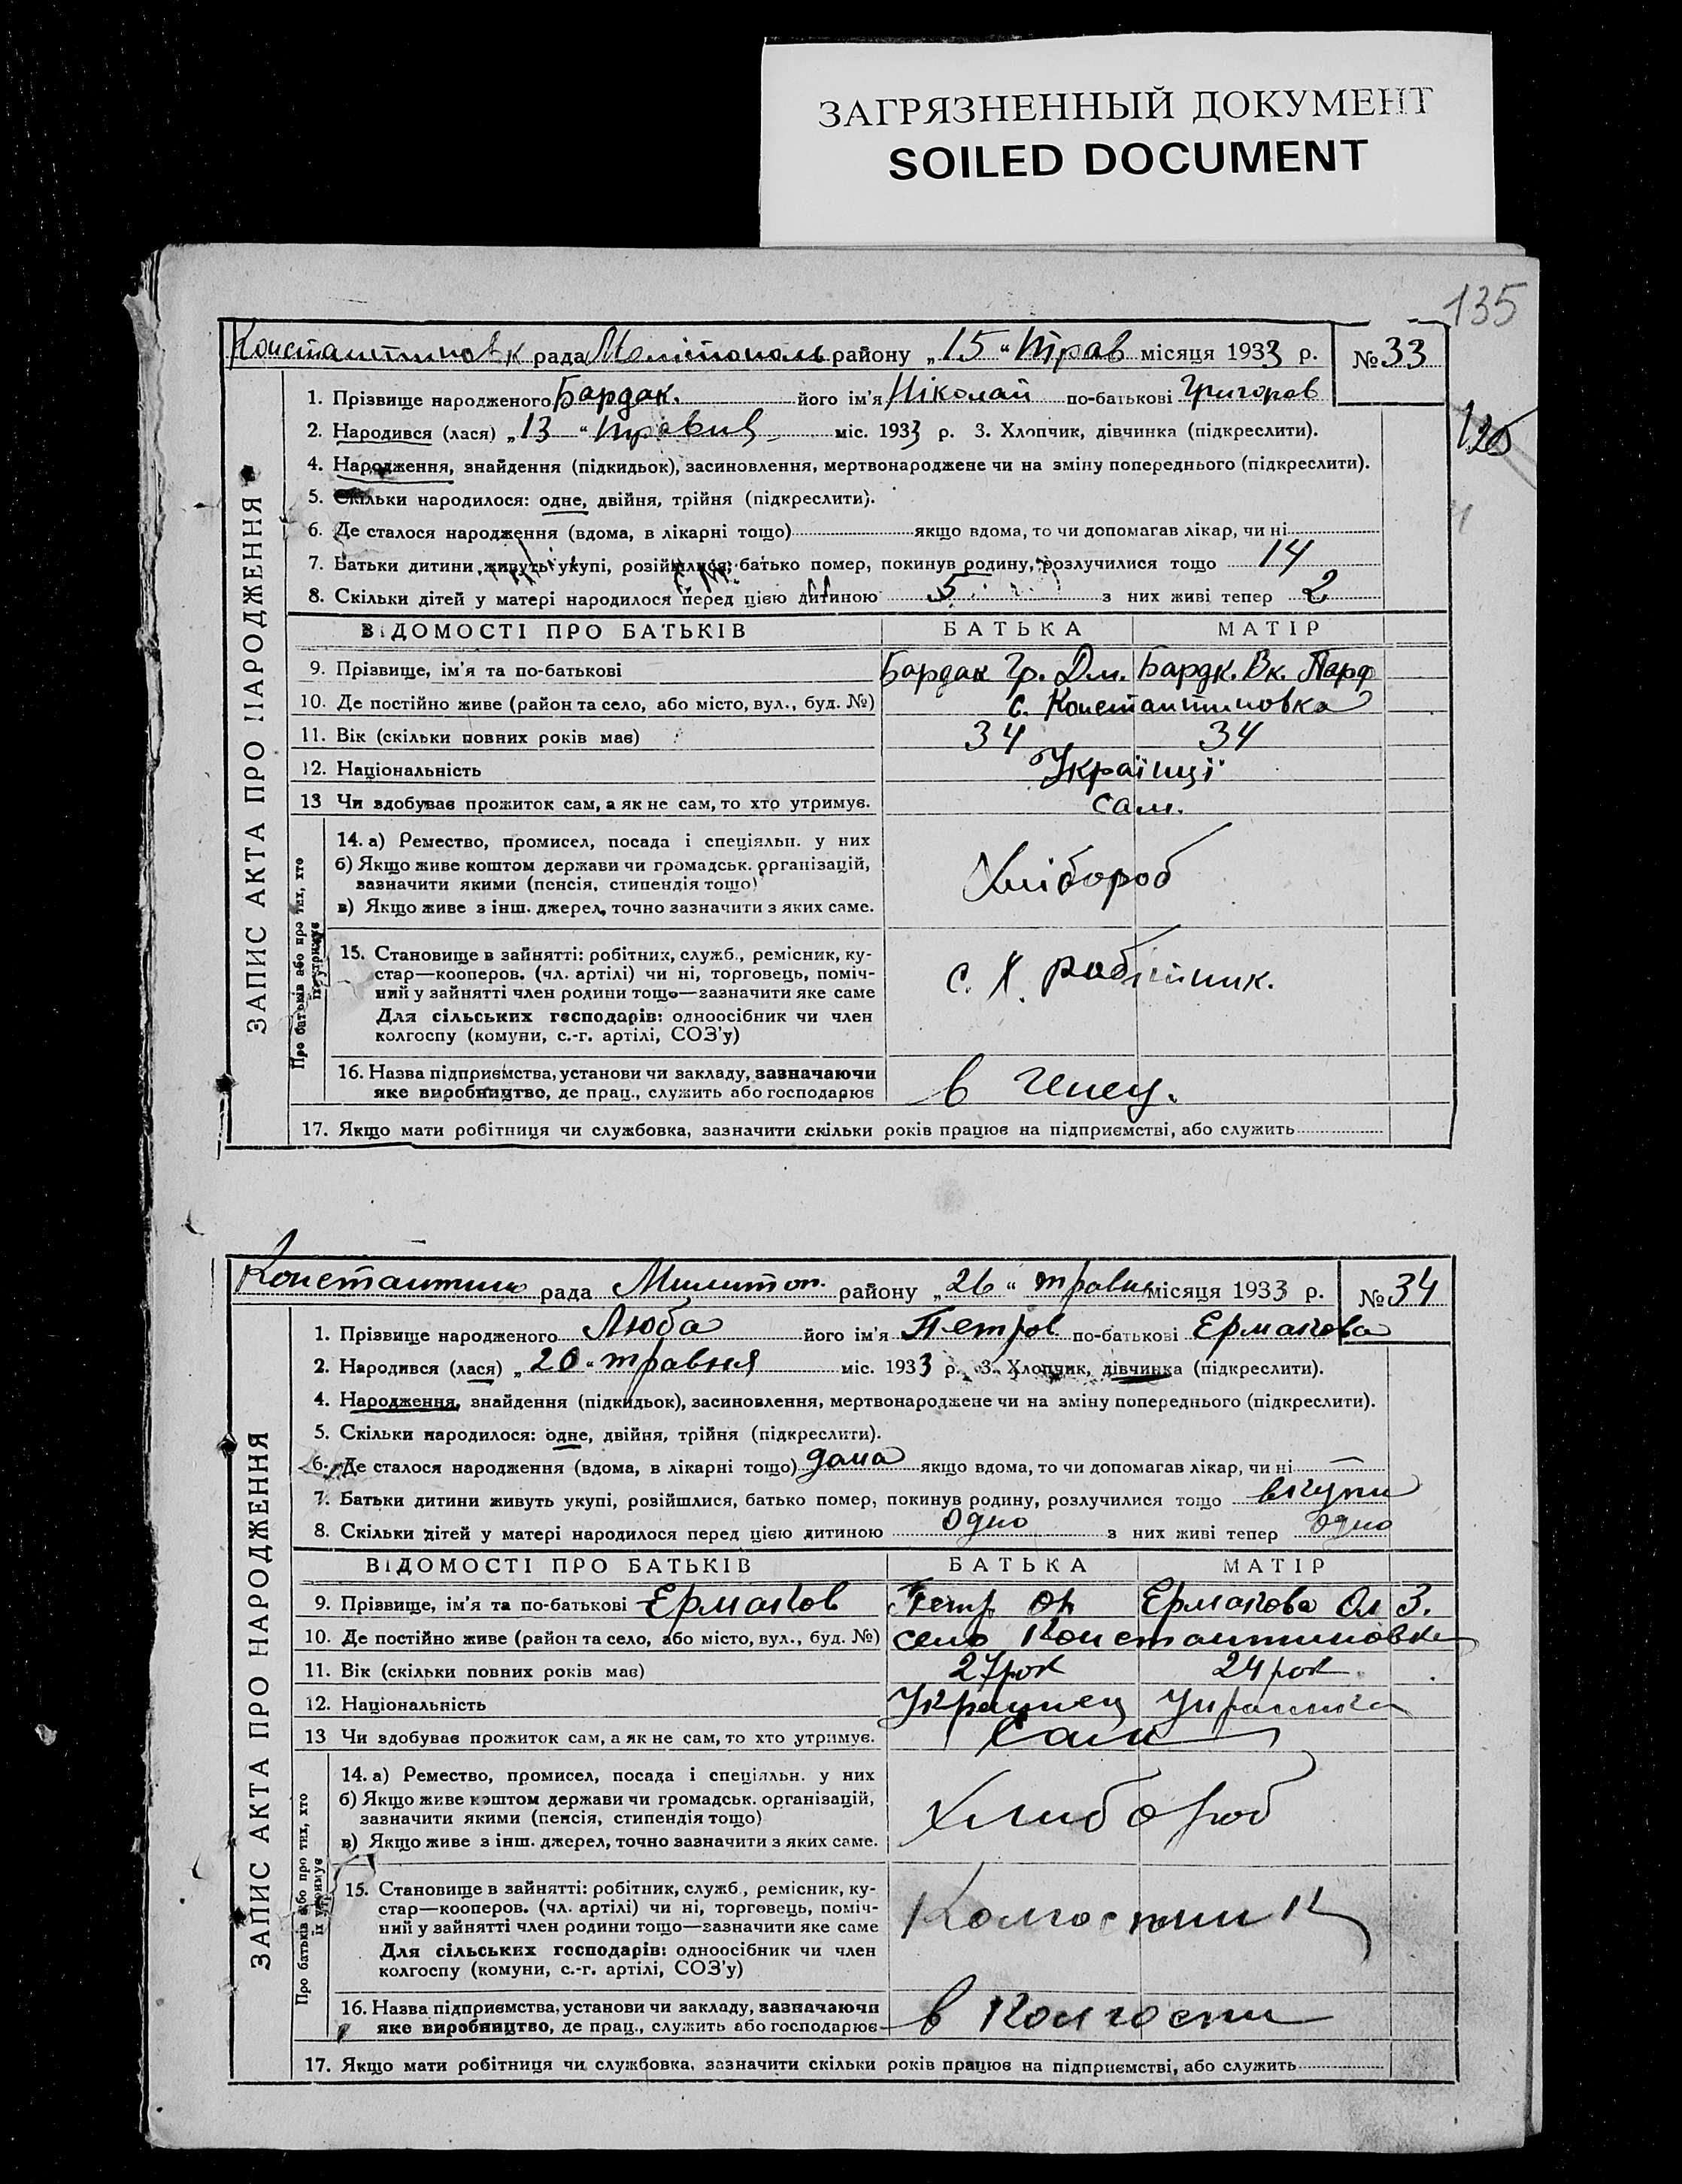 ЗАГРЯЗНЕННЫЙ ДОКУМЕНТ
SOILED DOCUMENT
135
Константиновк рада Мелітополь району „15" Трав місяця 1933 р. № 33
1. Прізвище народженого Бардак. його ім'я Ніколай по-батькові Григоров
120
2. Народився (лася) „13" міс. 1933 р. 3. Хлопчик, дівчинка (підкреслити).
4. Народження, знайдення (підкидьок), засиновлення, мертвонароджене чи на зміну попереднього (підкреслити).
5. Скільки народилося: одне, двійня, трійня (підкреслити).
6. Де сталося народження (вдома, в лікарні тощо) якщо вдома, то чи допомагав лікар, чи ні
7. Батьки дитини живуть укупі, розійшлися, батько помер, покинув родину, розлучилися тощо 14
8. Скільки дітей у матері народилося перед цією дитиною 5 з них живі тепер 2
ВІДОМОСТІ ПРО БАТЬКІВ БАТЬКА МАТІР
9. Прізвище, ім'я та по-батькові Бардак Гр. Дм. Бардк. Вк. Парф
10. Де постійно живе (район та село, або місто, вул., буд. №) с. Константиновка
11. Вік (скільки повних років має) 34 34
12. Національність Українці
13 Чи здобуває прожиток сам, а як не сам, то хто утримує. сам.
14. а) Ремество, промисел, посада і спеціяльн. у них
б) Якщо живе коштом держави чи громадськ. організацій,
зазначити якими (пенсія, стипендія тощо)
в) Якщо живе з інш. джерел, точно зазначити з яких саме.
Хлібороб
15. Становище в зайнятті: робітник, служб., ремісник, ку-
стар—кооперов. (чл. артілі) чи ні, торговець, поміч-
ний у зайнятті член родини тощо—зазначити яке саме
Для сільських господарів: одноосібник чи член
колгоспу (комуни, с.-г. артілі, СОЗ'у)
с. х. робітник.
16. Назва підприємства, установи чи закладу, зазначаючи
яке виробництво, де прац., служить або господарює
в
17. Якщо мати робітниця чи службовка, зазначити скільки років працює на підприємстві, або служить
ЗАПИС АКТА ПРО НАРОДЖЕННЯ
Про батьків або про тих, хто
їх утримує
Константин рада Милитоп. району „26" травня місяця 1933 р. № 34
1. Прізвище народженого Люба його ім'я Петров по-батькові Ермакова
2. Народився (лася) „20" травня міс. 1933 р. 3. Хлопчик, дівчинка (підкреслити).
4. Народження, знайдення (підкидьок), засиновлення, мертвонароджене чи на зміну попереднього (підкреслити).
5. Скільки народилося: одне, двійня, трійня (підкреслити).
6. Де сталося народження (вдома, в лікарні тощо) дома якщо вдома, то чи допомагав лікар, чи ні —
7. Батьки дитини живуть укупі, розійшлися, батько помер, покинув родину, розлучилися тощо вкупи
8. Скільки дітей у матері народилося перед цією дитиною одно з них живі тепер одно
ВІДОМОСТІ ПРО БАТЬКІВ БАТЬКА МАТІР
9. Прізвище, ім'я та по-батькові Ермаков Петр Ермакова Ол З.
10. Де постійно живе (район та село, або місто, вул., буд. №) село Константиновка
11. Вік (скільки повних років має) 27 рок 24 рок
12. Національність Украинец Украинка
13 Чи здобуває прожиток сам, а як не сам, то хто утримує. Сам
14. а) Ремество, промисел, посада і спеціяльн. у них
б) Якщо живе коштом держави чи громадськ. організацій,
зазначити якими (пенсія, стипендія тощо)
в) Якщо живе з інш. джерел, точно зазначити з яких саме.
Хлибороб
15. Становище в зайнятті: робітник, служб., ремісник, ку-
стар—кооперов. (чл. артілі) чи ні, торговець, поміч-
ний у зайнятті член родини тощо—зазначити яке саме
Для сільських господарів: одноосібник чи член
колгоспу (комуни, с.-г. артілі, СОЗ'у)
Колгоспник
16. Назва підприємства, установи чи закладу, зазначаючи
яке виробництво, де прац., служить або господарює
в Колгоспи
17. Якщо мати робітниця чи службовка, зазначити скільки років працює на підприємстві, або служить
ЗАПИС АКТА ПРО НАРОДЖЕННЯ
Про батьків або про тих, хто
їх утримує